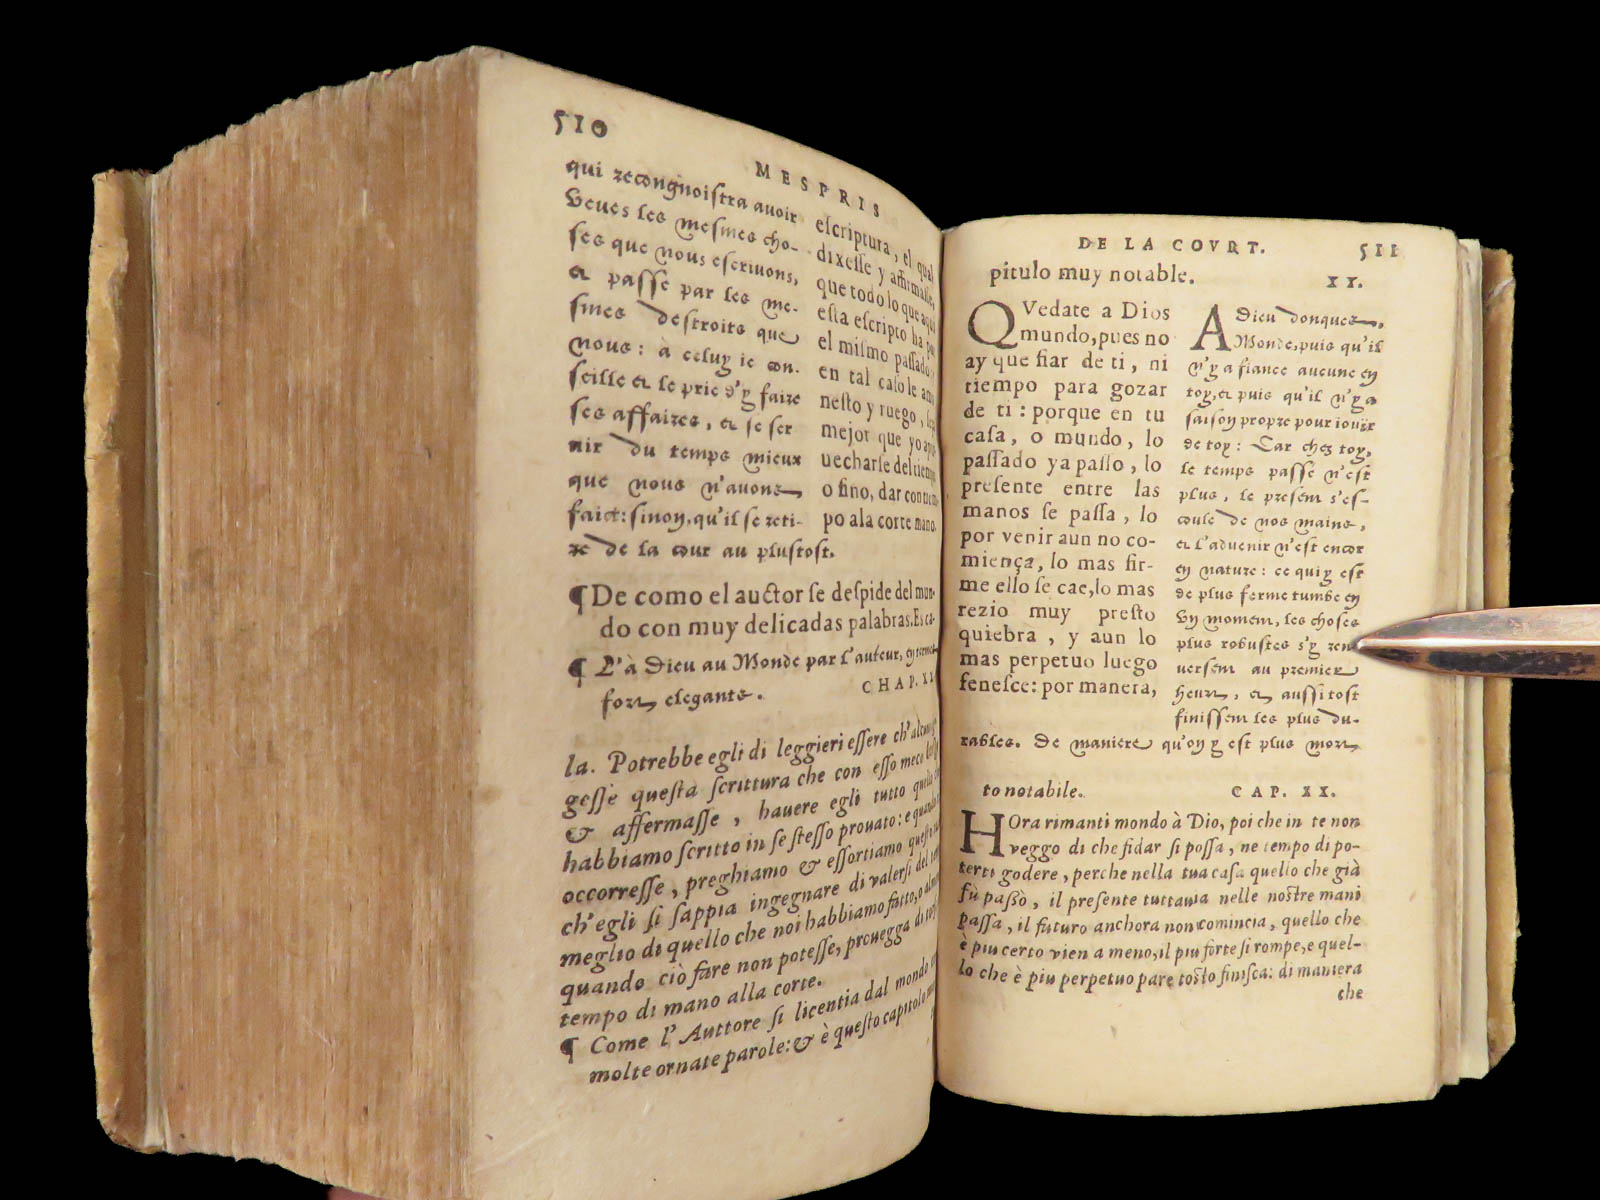 510
MESPRIS
qui recongnoiſtra avoir
veues les meſmes cho-
ſes que nous eſcrivons,
& paſſe par les me-
ſmes deſtroits que
nous: à celuy ie con-
ſeille & le prie d'y faire
ſes affaires, & ſe ſer
nir du temps mieux
que nous n'avons
faict: ſinon, qu'il ſe reti-
re de la cour au pluſtoſt.
eſcriptura, el qual
dixeſſe y affirmaſſe,
que todo lo que aqui
eſta eſcripto ha
el miſmo paſſado,
en tal caſo le
neſto y ruego,
mejor que yo
uecharſe del
o ſino, dar con
po ala corte mano.
¶ De como el auctor ſe deſpide del mun-
do con muy delicadas palabras. Es ca-
¶ L'à Dieu au Monde par l'auteur, en
fort elegants.
CHAP.
la. Potrebbe egli di leggieri eſſere ch'
geſſe queſta ſcrittura che con eſſo meco
& affermaſſe, hauere egli tutto
habbiamo ſcritto in ſe ſteſſo prouato: e quando
occorreſſe, preghiamo & eſſortiamo
ch'egli ſi ſappia ingegnare di valerſi del
meglio di quello che noi habbiamo fatto, o
quando ciò fare non poteſſe, prouegga di
tempo di mano alla corte.
¶ Come l'Auttore ſi licentia dal mondo
molte ornate parole: & è queſto capitolo
DE LA COVRT.
511
pitulo muy notable.
XX.
QVedate a Dios
mundo, pues no
ay que fiar de ti, ni
tiempo para gozar
de ti: porque en tu
caſa, o mundo, lo
paſſado ya paſſo, lo
preſente entre las
manos ſe paſſa, lo
por venir aun no co-
miença, lo mas fir-
me ello ſe cae, lo mas
rezio muy preſto
quiebra, y aun lo
mas perpetuo luego
feneſce: por manera,
ADieu donques,
Monde, puis qu'il
n'y a fiance aucune en
toy, & puis qu'il n'y a
ſaiſon propre pour iouir
de toy: Car chez toy,
le temps paſſé n'eſt
plus, le preſent s'eſ-
coule de nos mains,
& l'advenir n'eſt encor
en nature: ce qui y eſt
de plus ferme tumbe en
vn moment, les choſes
plus robuſtes s'y ren
verſent au premier
heurt, & auſſi toſt
finiſſent les plus du-
rables. De maniere qu'on y eſt plus mort
to notabile.
CAP. XX.
HOra rimanti mondo à Dio, poi che in te non
veggo di che fidar ſi poſſa, ne tempo di po-
terti godere, perche nella tua caſa quello che già
fù paſsò, il preſente tuttauia nelle noſtre mani
paſſa, il futuro anchora non comincia, quello che
è piu certo vien a meno, il piu forte ſi rompe, e quel-
lo che è piu perpetuo pare toſto finiſca: di maniera
che